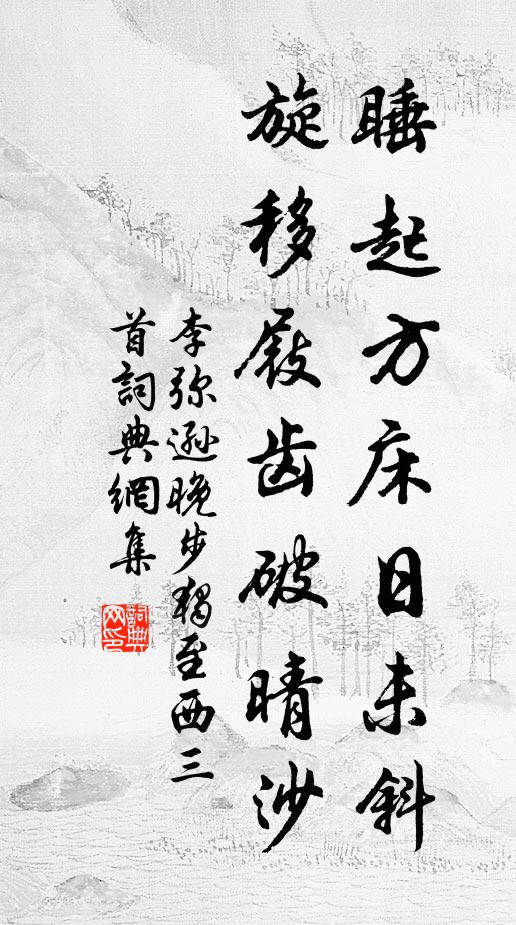 睡起方床日未斜
旋移屐齿破晴沙
李弥逊晚步独至西三
首詞典網集
詞典
网印